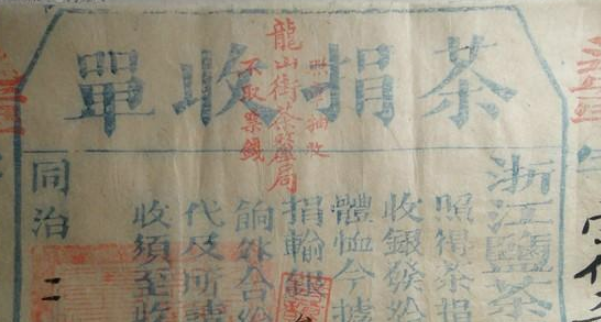 茶捐收單
龍山街茶釐局
不取票錢
浙江鹽茶
照得茶捐
收銀候給
體恤今據
捐輸銀
餉外合給
代及所
收須至收
同治二